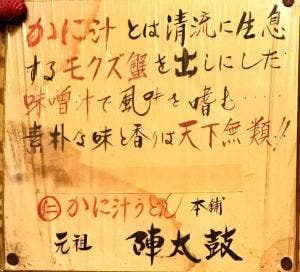 かに汁とは清流に生息
するモクズ蟹を出しにした
味噌汁で風味を嗜む……
素朴な味と香りは天下無類!!
㊁かに汁うどん 本舗
元祖 陣太鼓